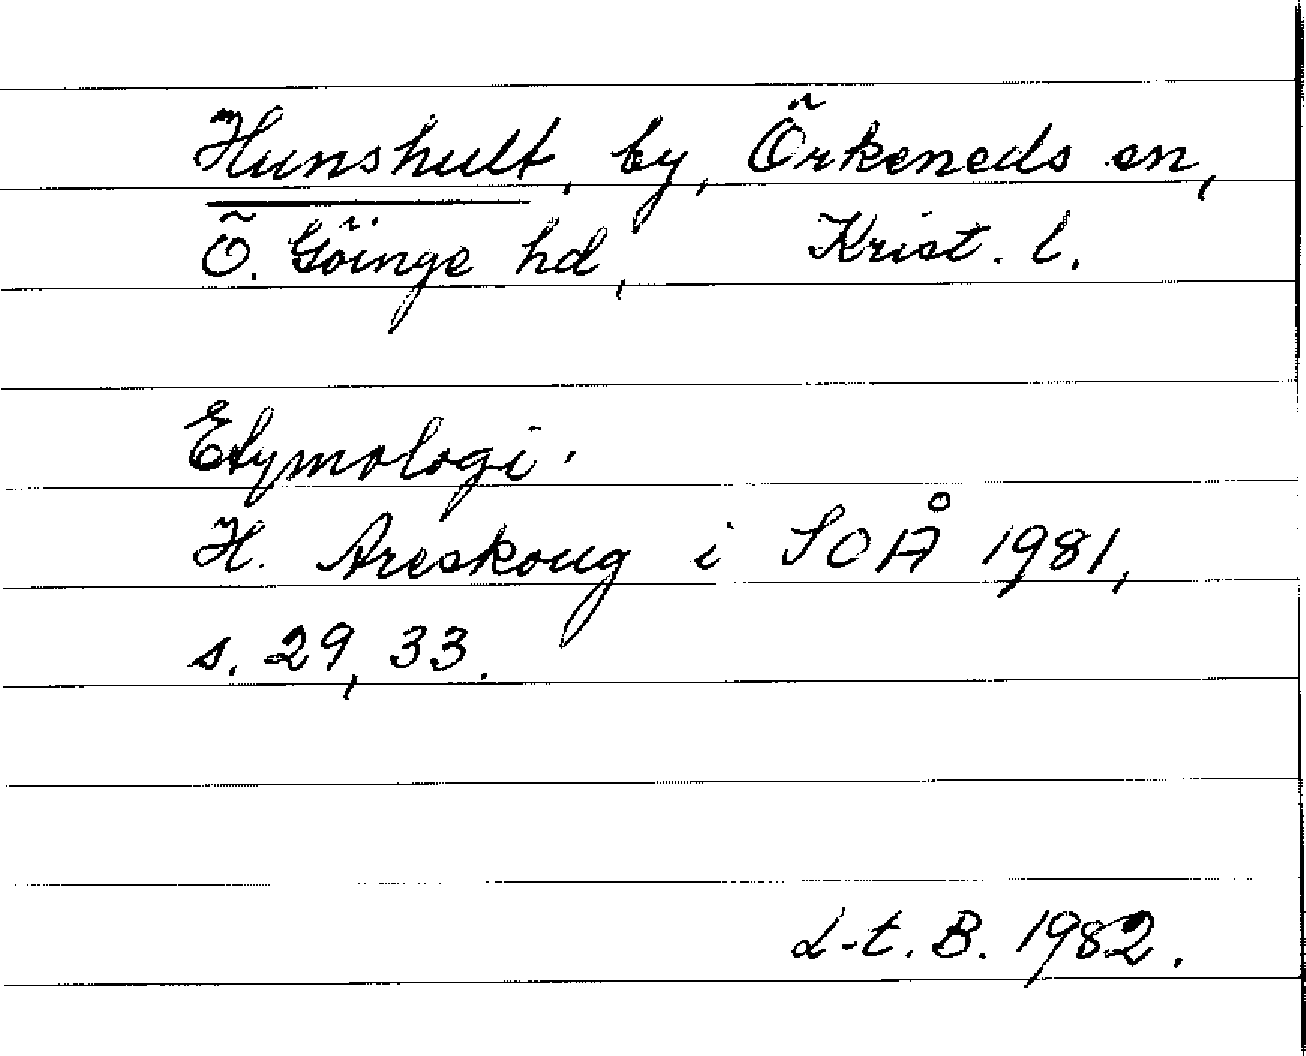 Hunshult, by, Örkeneds sn,
Ö. Göinge hd, Krist. l.
Etymologi.
H. Areskoug i SOÅ 1981,
s. 29, 33.
L-t. B. 1982.